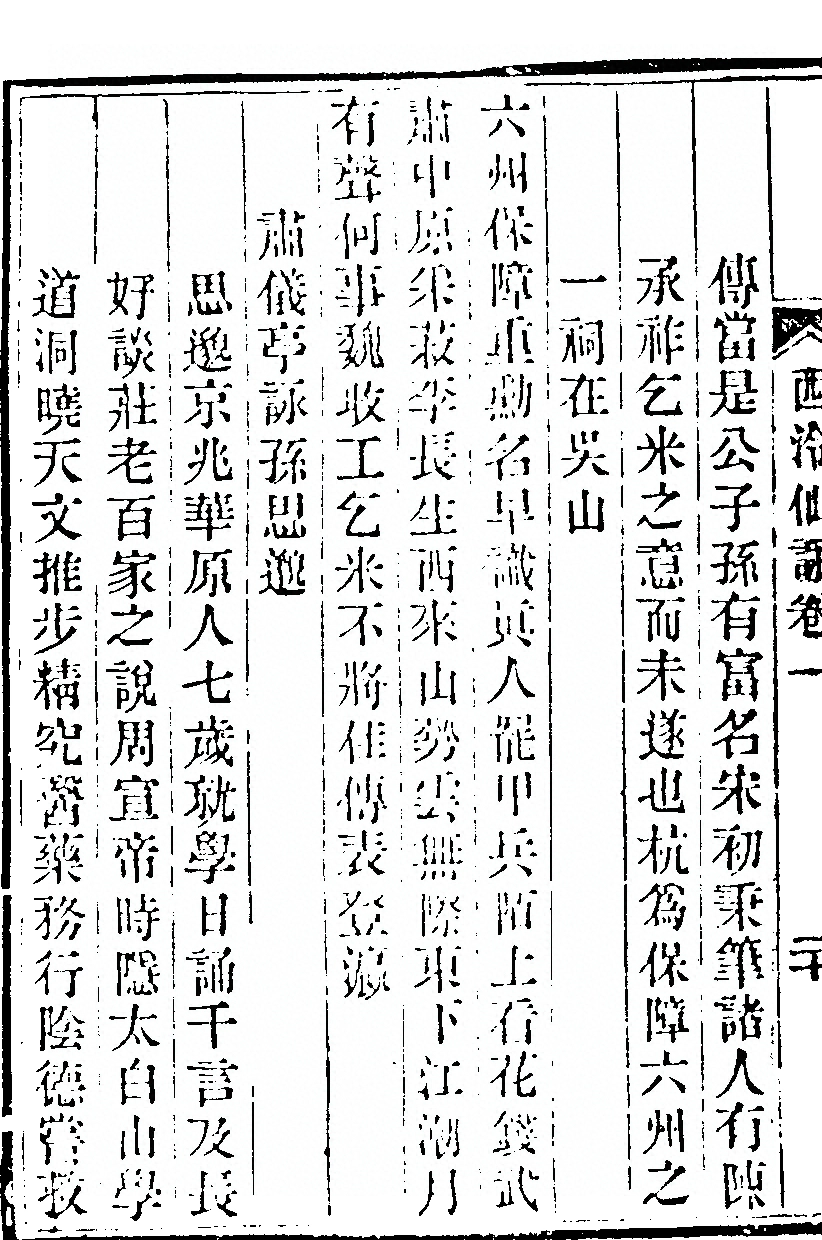 西泠仙詠卷一 二十
傳當是公子孫有富名宋初秉筆諸人有陳
承祚乞米之意而未遂也杭為保障六州之
一祠在吳山
六州保障重勳名早識真人罷甲兵陌上看花錢武
肅中原采藥李長生西來山勢雲無際東下江潮月
有聲何事魏收工乞米不將佳傳表登瀛
肅儀亭詠孫思邈
思邈京兆華原人七歲就學日誦千言及長
好談莊老百家之說周宣帝時隱太白山學
道洞曉天文推步精究醫藥務行陰德嘗救